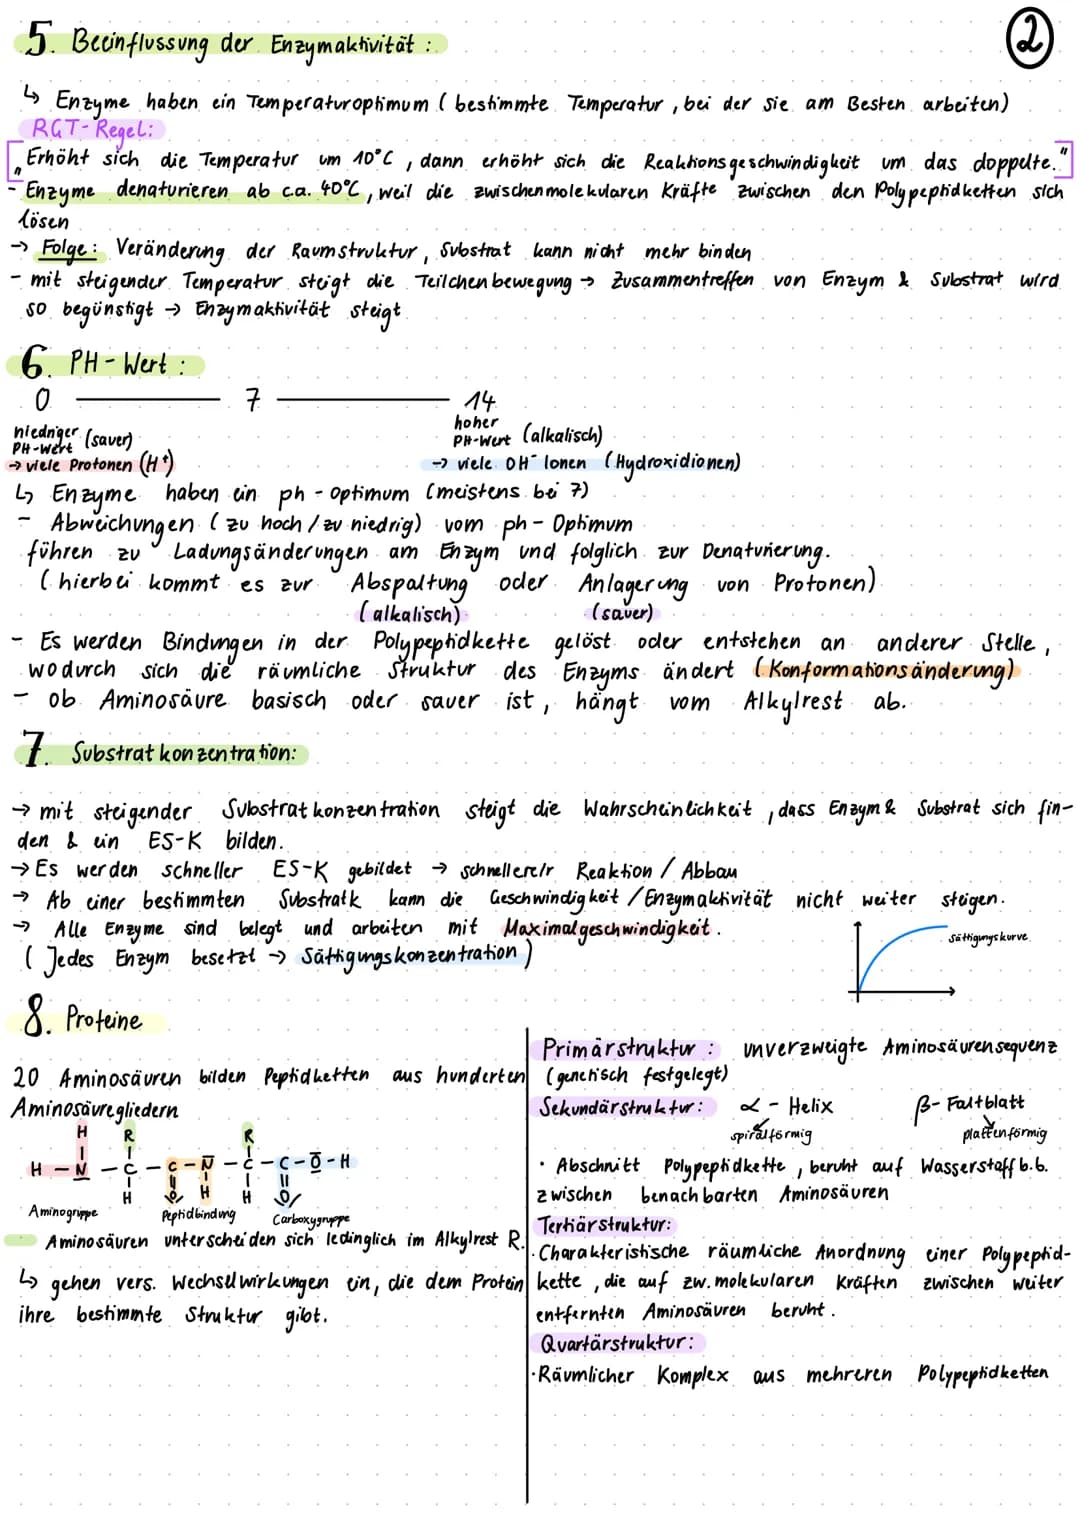 2
5. Beeinflussung der Enzymaktivität :
↳ Enzyme haben ein Temperaturoptimum ( bestimmte Temperatur , bei der sie am Besten arbeiten)
RGT-Regel:
[„Erhöht sich die Temperatur um 10°C , dann erhöht sich die Reaktionsgeschwindigkeit um das doppelte."]
- Enzyme denaturieren ab ca. 40°C , weil die zwischenmolekularen Kräfte zwischen den Polypeptidketten sich
lösen
→ Folge : Veränderung der Raumstruktur , Substrat kann nicht mehr binden
- mit steigender Temperatur steigt die Teilchenbewegung → Zusammentreffen von Enzym & Substrat wird
so begünstigt → Enzymaktivität steigt
6. PH - Wert :
0 7 14
niedriger PH-Wert (sauer)
hoher PH-Wert (alkalisch)
→ viele Protonen (H⁺)
→ viele OH⁻ Ionen (Hydroxidionen)
↳ Enzyme haben ein ph - optimum (meistens bei 7)
- Abweichungen ( zu hoch / zu niedrig) vom ph - Optimum
führen zu Ladungsänderungen am Enzym und folglich zur Denaturierung.
( hierbei kommt es zur Abspaltung oder Anlagerung von Protonen)
(alkalisch) (sauer)
- Es werden Bindungen in der Polypeptidkette gelöst oder entstehen an anderer Stelle ,
wodurch sich die räumliche Struktur des Enzyms ändert (Konformationsänderung)
- ob Aminosäure basisch oder sauer ist , hängt vom Alkylrest ab.
7. Substratkonzentration:
→ mit steigender Substratkonzentration steigt die Wahrscheinlichkeit , dass Enzym & Substrat sich fin-
den & ein ES-K bilden.
→ Es werden schneller ES-K gebildet → schnellere/r Reaktion / Abbau
→ Ab einer bestimmten Substratk kann die Geschwindigkeit / Enzymaktivität nicht weiter steigen.
→ Alle Enzyme sind belegt und arbeiten mit Maximalgeschwindigkeit .
( Jedes Enzym besetzt → Sättigungskonzentration )
Sättigungskurve
8. Proteine
20 Aminosäuren bilden Peptidketten aus hunderten
Aminosäuregliedern
H R R
H - N - C - C - N - C - C - O - H
H O H H O
Aminogruppe Peptidbindung Carboxygruppe
Aminosäuren unterscheiden sich ledinglich im Alkylrest R.
↳ gehen vers. Wechselwirkungen ein, die dem Protein
ihre bestimmte Struktur gibt.
Primärstruktur : unverzweigte Aminosäurensequenz
(genetisch festgelegt)
Sekundärstruktur : α - Helix β- Faltblatt
spiralförmig plattenförmig
· Abschnitt Polypeptidkette , beruht auf Wasserstoff b.b.
zwischen benachbarten Aminosäuren
Tertiärstruktur:
· Charakteristische räumliche Anordnung einer Polypeptid-
kette , die auf zw. molekularen Kräften zwischen weiter
entfernten Aminosäuren beruht .
Quartärstruktur :
· Räumlicher Komplex aus mehreren Polypeptidketten